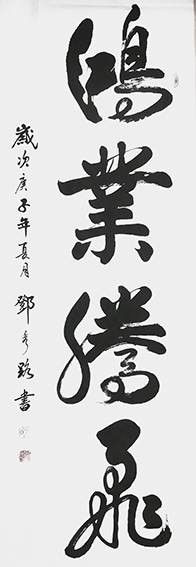 鴻業騰飛
歲次庚子年夏月鄧秀路書